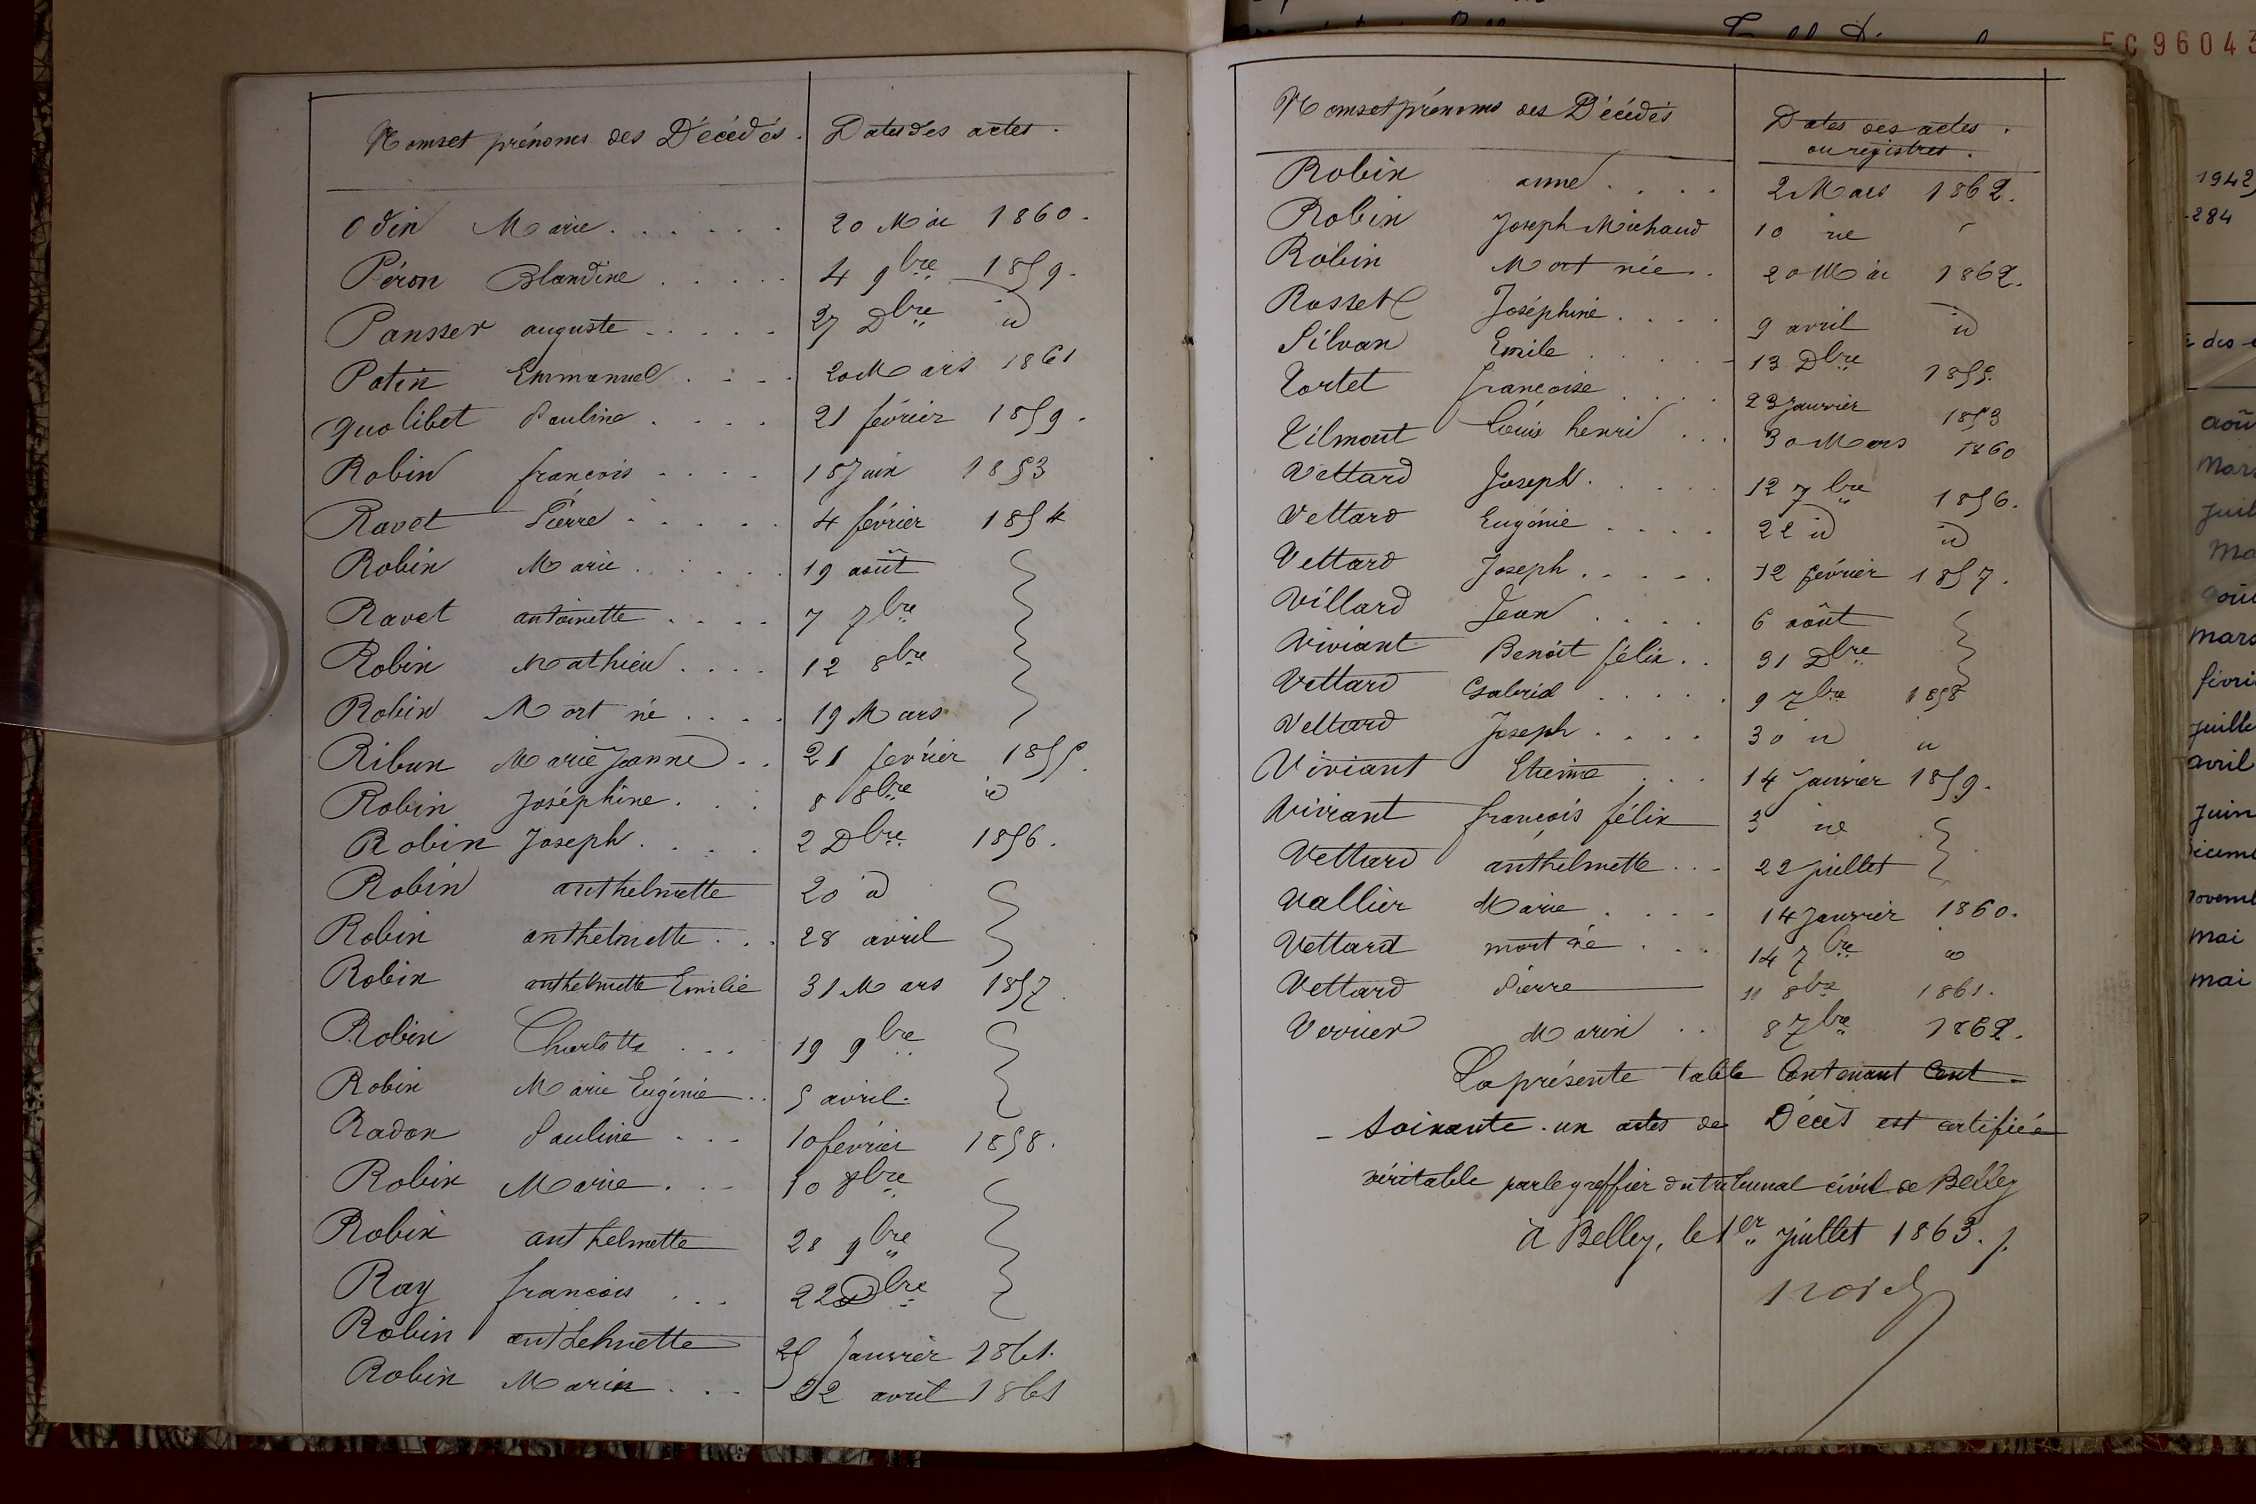 Noms et prénoms des Décédés. Dates des actes.
Odin Marie...... 20 Mai 1860.
Péron Blandine..... 4 9bre 1859.
Pansser auguste..... 27 Dbre id
Patin Emmanuel.... 20 Mars 1861
quolibet Pauline.... 21 février 1859.
Robin françois.... 18 Juin 1853
Ravet Pierre..... 4 février 1854
Robin Marie...... 19 août
Ravet antoinette.... 7 7bre
Robin Mathieu.... 12 8bre
Robin Mort né.... 19 Mars
Ribun Marie Jeanne.. 21 février 1855.
Robin Joséphine... 8 8bre id
Robin Joseph.... 2 Dbre 1856.
Robin anthelmette 20 id
Robin anthelmette... 28 avril
Robin anthelmette Emilie 31 Mars 1857.
Robin Charlotte... 19 9bre
Robin Marie Eugénie.. 5 avril.
Radon Pauline... 10 février 1858.
Robin Marie... 10 8bre
Robin anthelmette 28 9bre
Ray françois... 22 Dbre
Robin anthelmette 25 Janvier 1861.
Robin Marie... 22 avril 1861
Noms et prénoms des Décédés Dates des actes.
ou registres.
Robin anne.... 2 Mars 1862.
Robin Joseph Michaud 10 "
Robin Mort née. 20 Mai 1862.
Rosset Joséphine.... 9 avril id
Silvan Emile..... 13 Dbre 1855.
Tortet françoise.... 23 Janvier 1853
Vilmont Louis henri... 30 Mars 1860
Vettard Joseph..... 12 7bre 1856.
Vettard Eugénie.... 22 id id
Vettard Joseph..... 12 février 1857.
Villard Jean.... 6 août
Viviant Benoit félix.. 31 Dbre
Vettard Gabriel..... 9 7bre 1858
Vettard Joseph.... 30 id id
Viviant Etienne... 14 Janvier 1859.
Viviant françois félix 3
Vettard anthelmette... 22 juillet
Vallier Marie.... 14 Janvier 1860.
Vettard mort né... 14 7bre id
Vettard Pierre 11 8bre 1861.
Verrier Marin.. 8 7bre 1862.
La présente table Contenant Cent
- soixante. un actes de Décès est certifiée
véritable par le greffier du tribunal civil de Belley
à Belley, le 1er Juillet 1863.
EC96043
1942
284
aoû
mars
juil
ma
aoû
mars
févri
juille
avril
juin
mai
mai